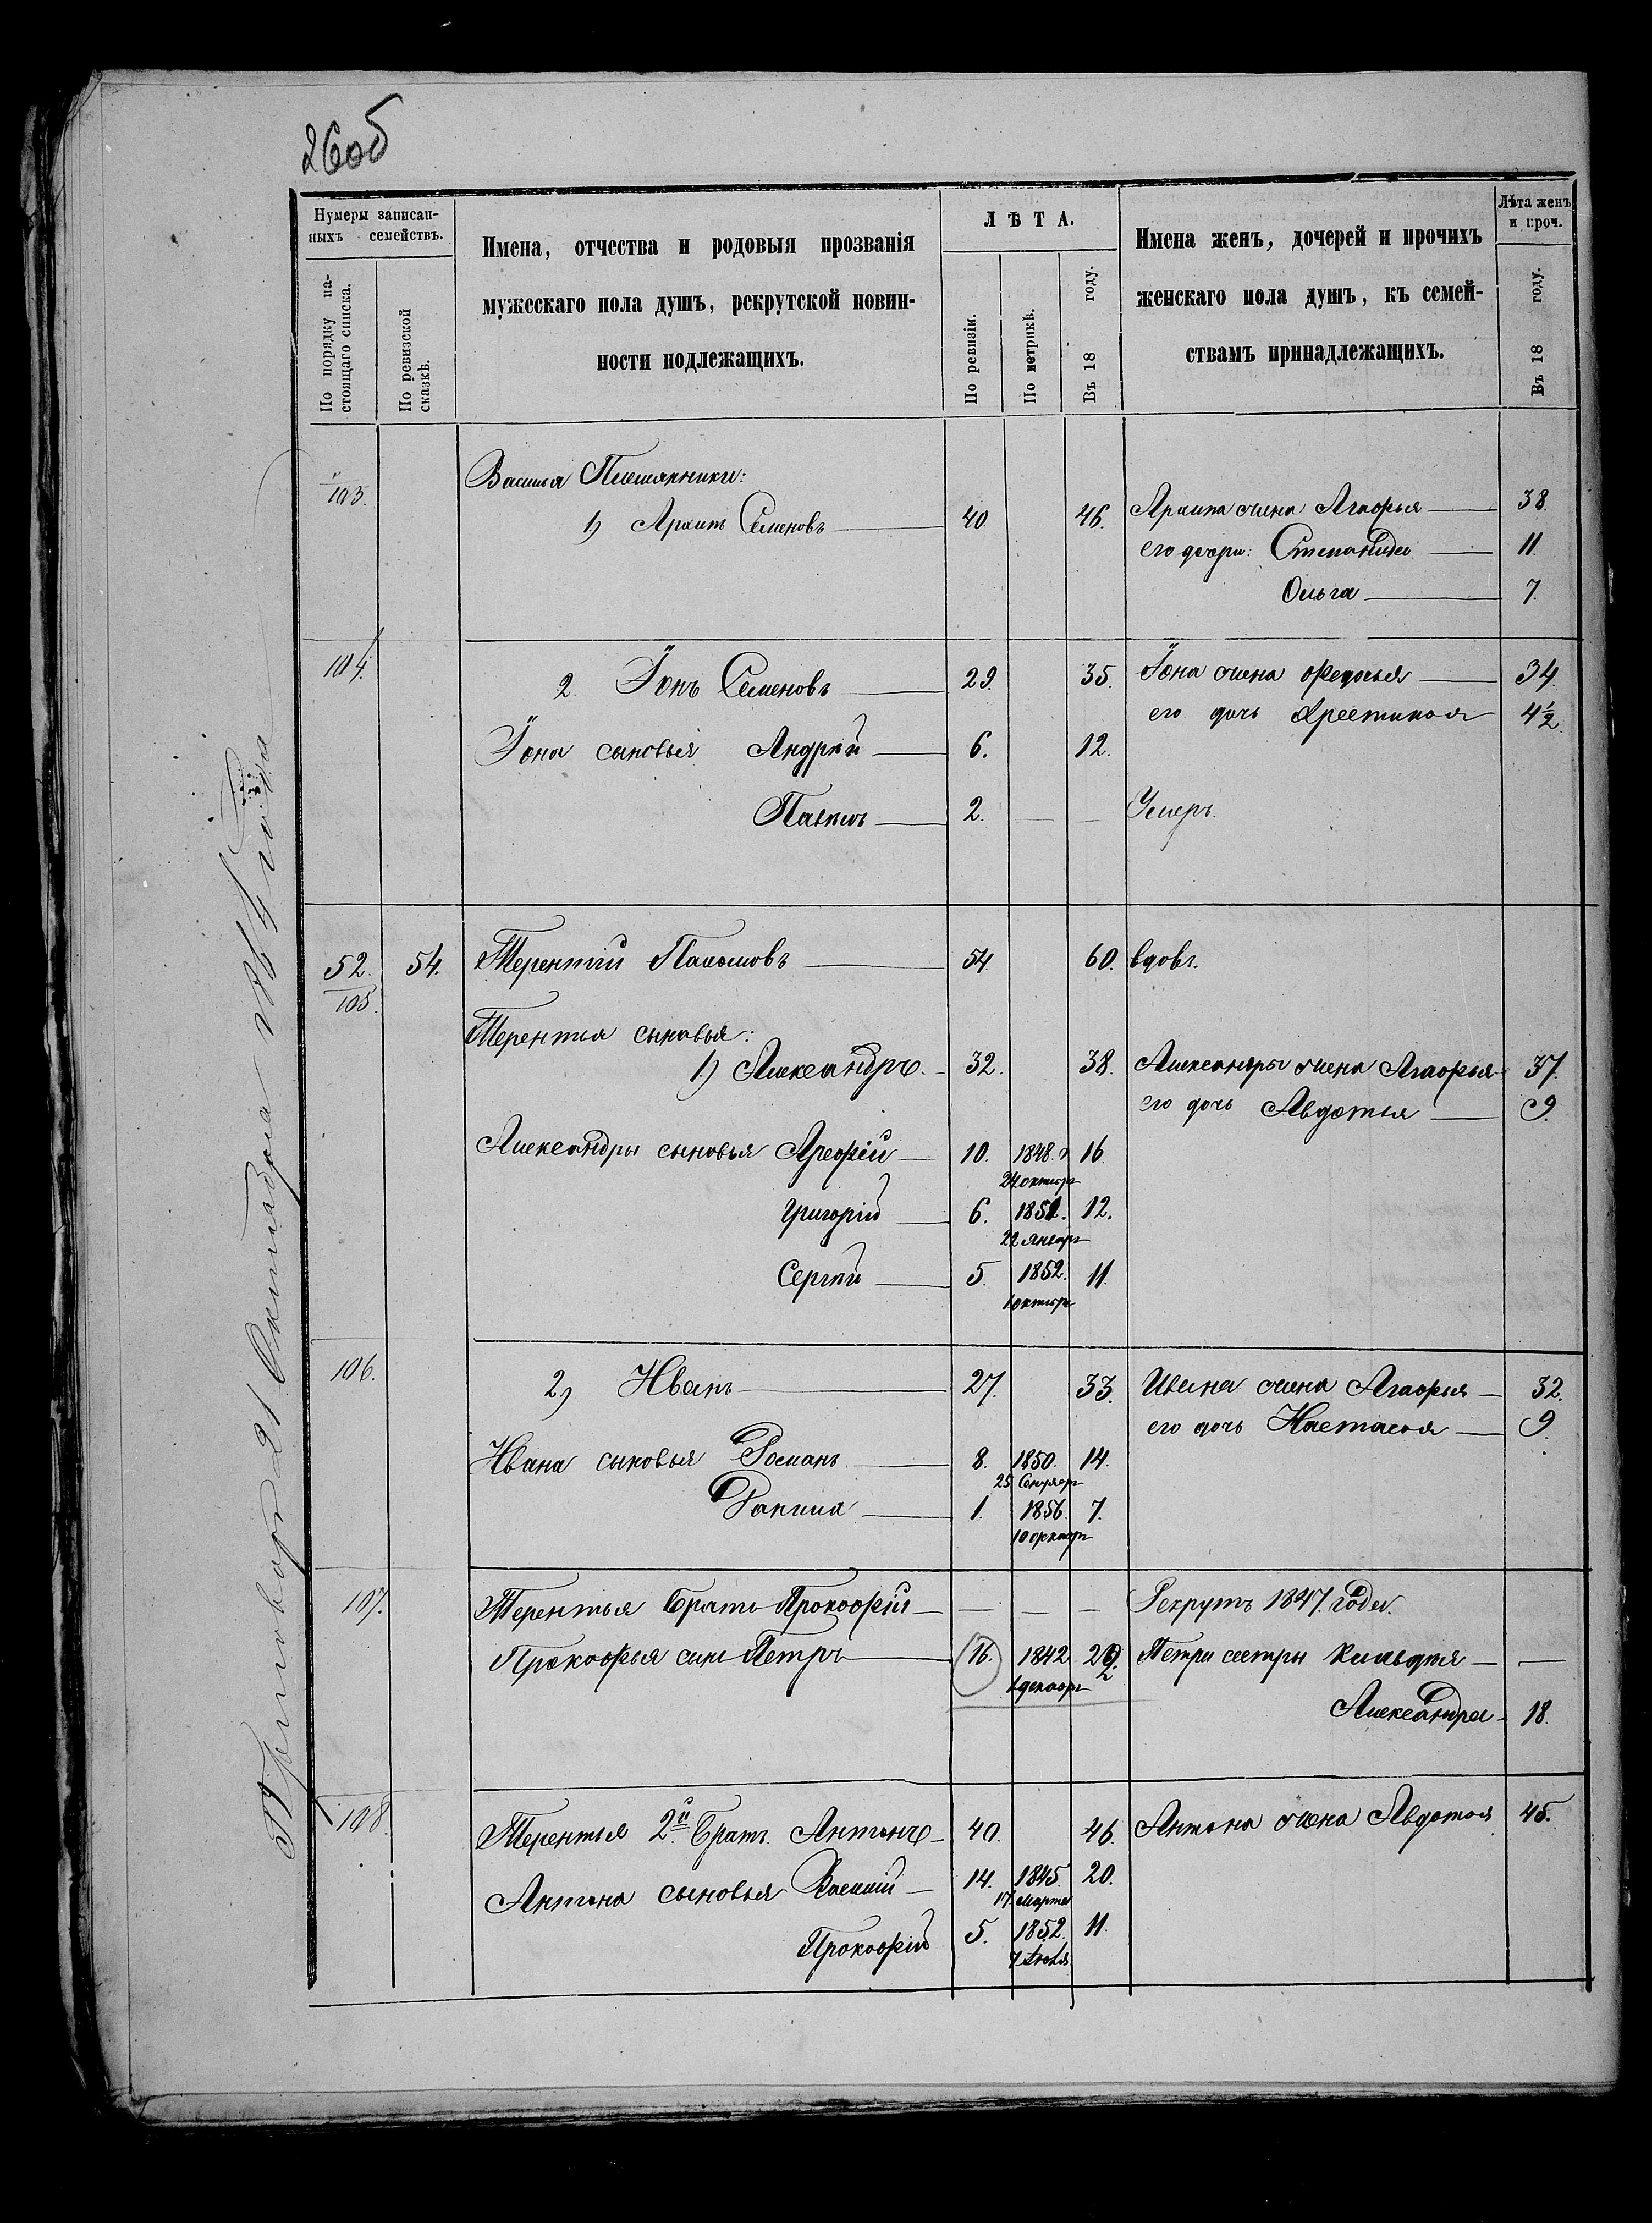 26об
Нумеры записан-
ныхъ семействъ.
По порядку на-
стоящаго списка.
По ревизской
сказкѣ.
Имена, отчества и родовыя прозванія
мужескаго пола душъ, рекрутской повин-
ности подлежащихъ.
ЛѢТА.
По ревизіи.
По метрикѣ.
Въ 18 году.
Имена женъ, дочерей и прочихъ
женскаго пола душъ, къ семей-
ствамъ принадлежащихъ.
Лѣта женъ
и проч.
Въ 18 году.
103.
Василья Племянники:
1) Архипъ Семеновъ 40. 46. Архипа жена Агафья 38.
его дочери: Степанида 11.
Ольга 7.
104. 2. Іонъ Семеновъ 29. 35. Іона жена Федосья 34.
его дочь Хрестинья 4½
Іона сыновья Андрей 6. 12.
Павелъ 2. — — Умеръ.
52. 54. Терентій Пахомовъ 54. 60. вдовъ.
105.
Терентья сыновья:
1) Александръ 32. 38. Александры жена Агафья 37.
его дочь Авдотья 9.
Александры сыновья Арефій 10. 1848. 16.
24 октяр
Григорій 6. 1851. 12.
22 Январ
Сергѣй 5. 1852. 11.
1 октяр
106. 2) Иванъ 27. 33. Ивана жена Агафья 32.
его дочь Настасья 9.
Ивана сыновья Романъ 8. 1850. 14.
25 Сентяр
1. 1856. 7.
10
107. Терентья братъ Прокофій — — — Рекрутъ 1847. Года.
Прокофья сынъ Петръ 16. 1842 Петра сестры —
1 декабр
Александра 18.
108. Терентья 2й братъ Антонъ 40. 46. Антона жена Авдотья 45.
Антона сыновья Василій 14. 1845. 20.
17 марта
Прокофій 5. 1852. 11.
7 Іюля
Приговоръ 21 Октября года